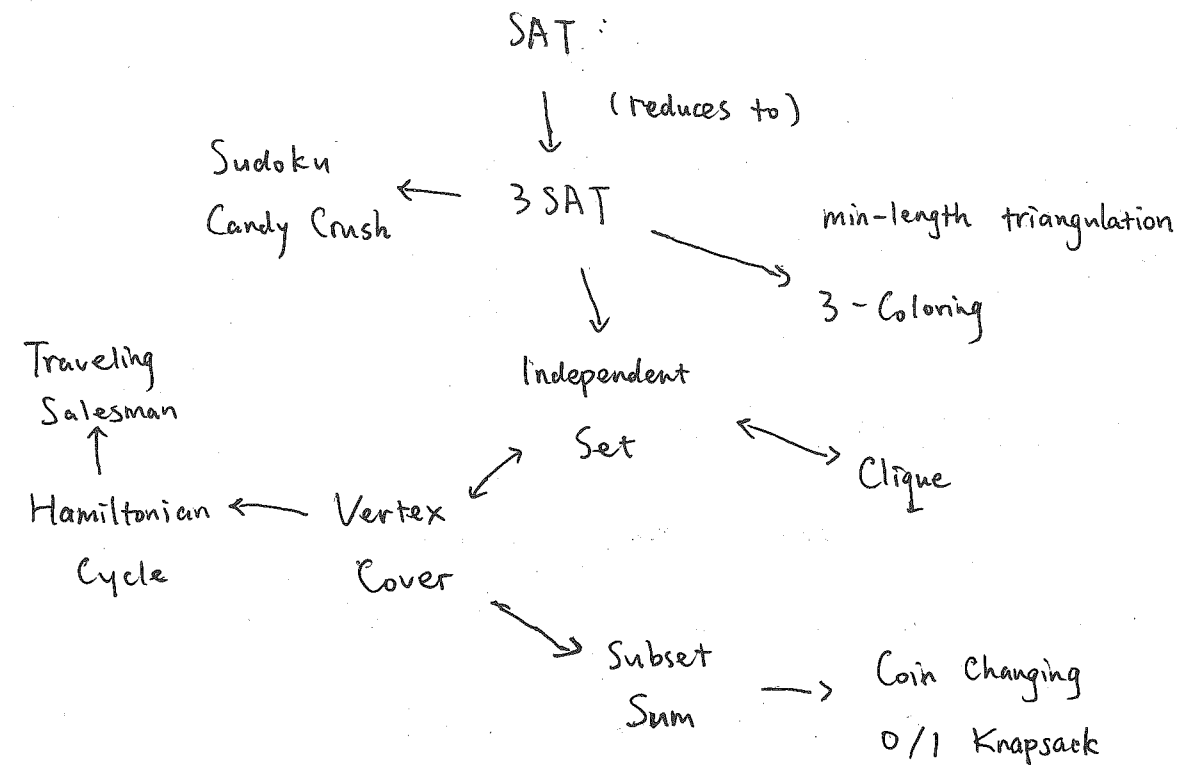 SAT :
(reduces to)
Sudoku
Candy Crush
3 SAT
min-length triangulation
3-Coloring
Traveling
Salesman
Independent
Set
Clique
Hamiltonian
Cycle
Vertex
Cover
Subset
Sum
Coin Changing
0/1 Knapsack